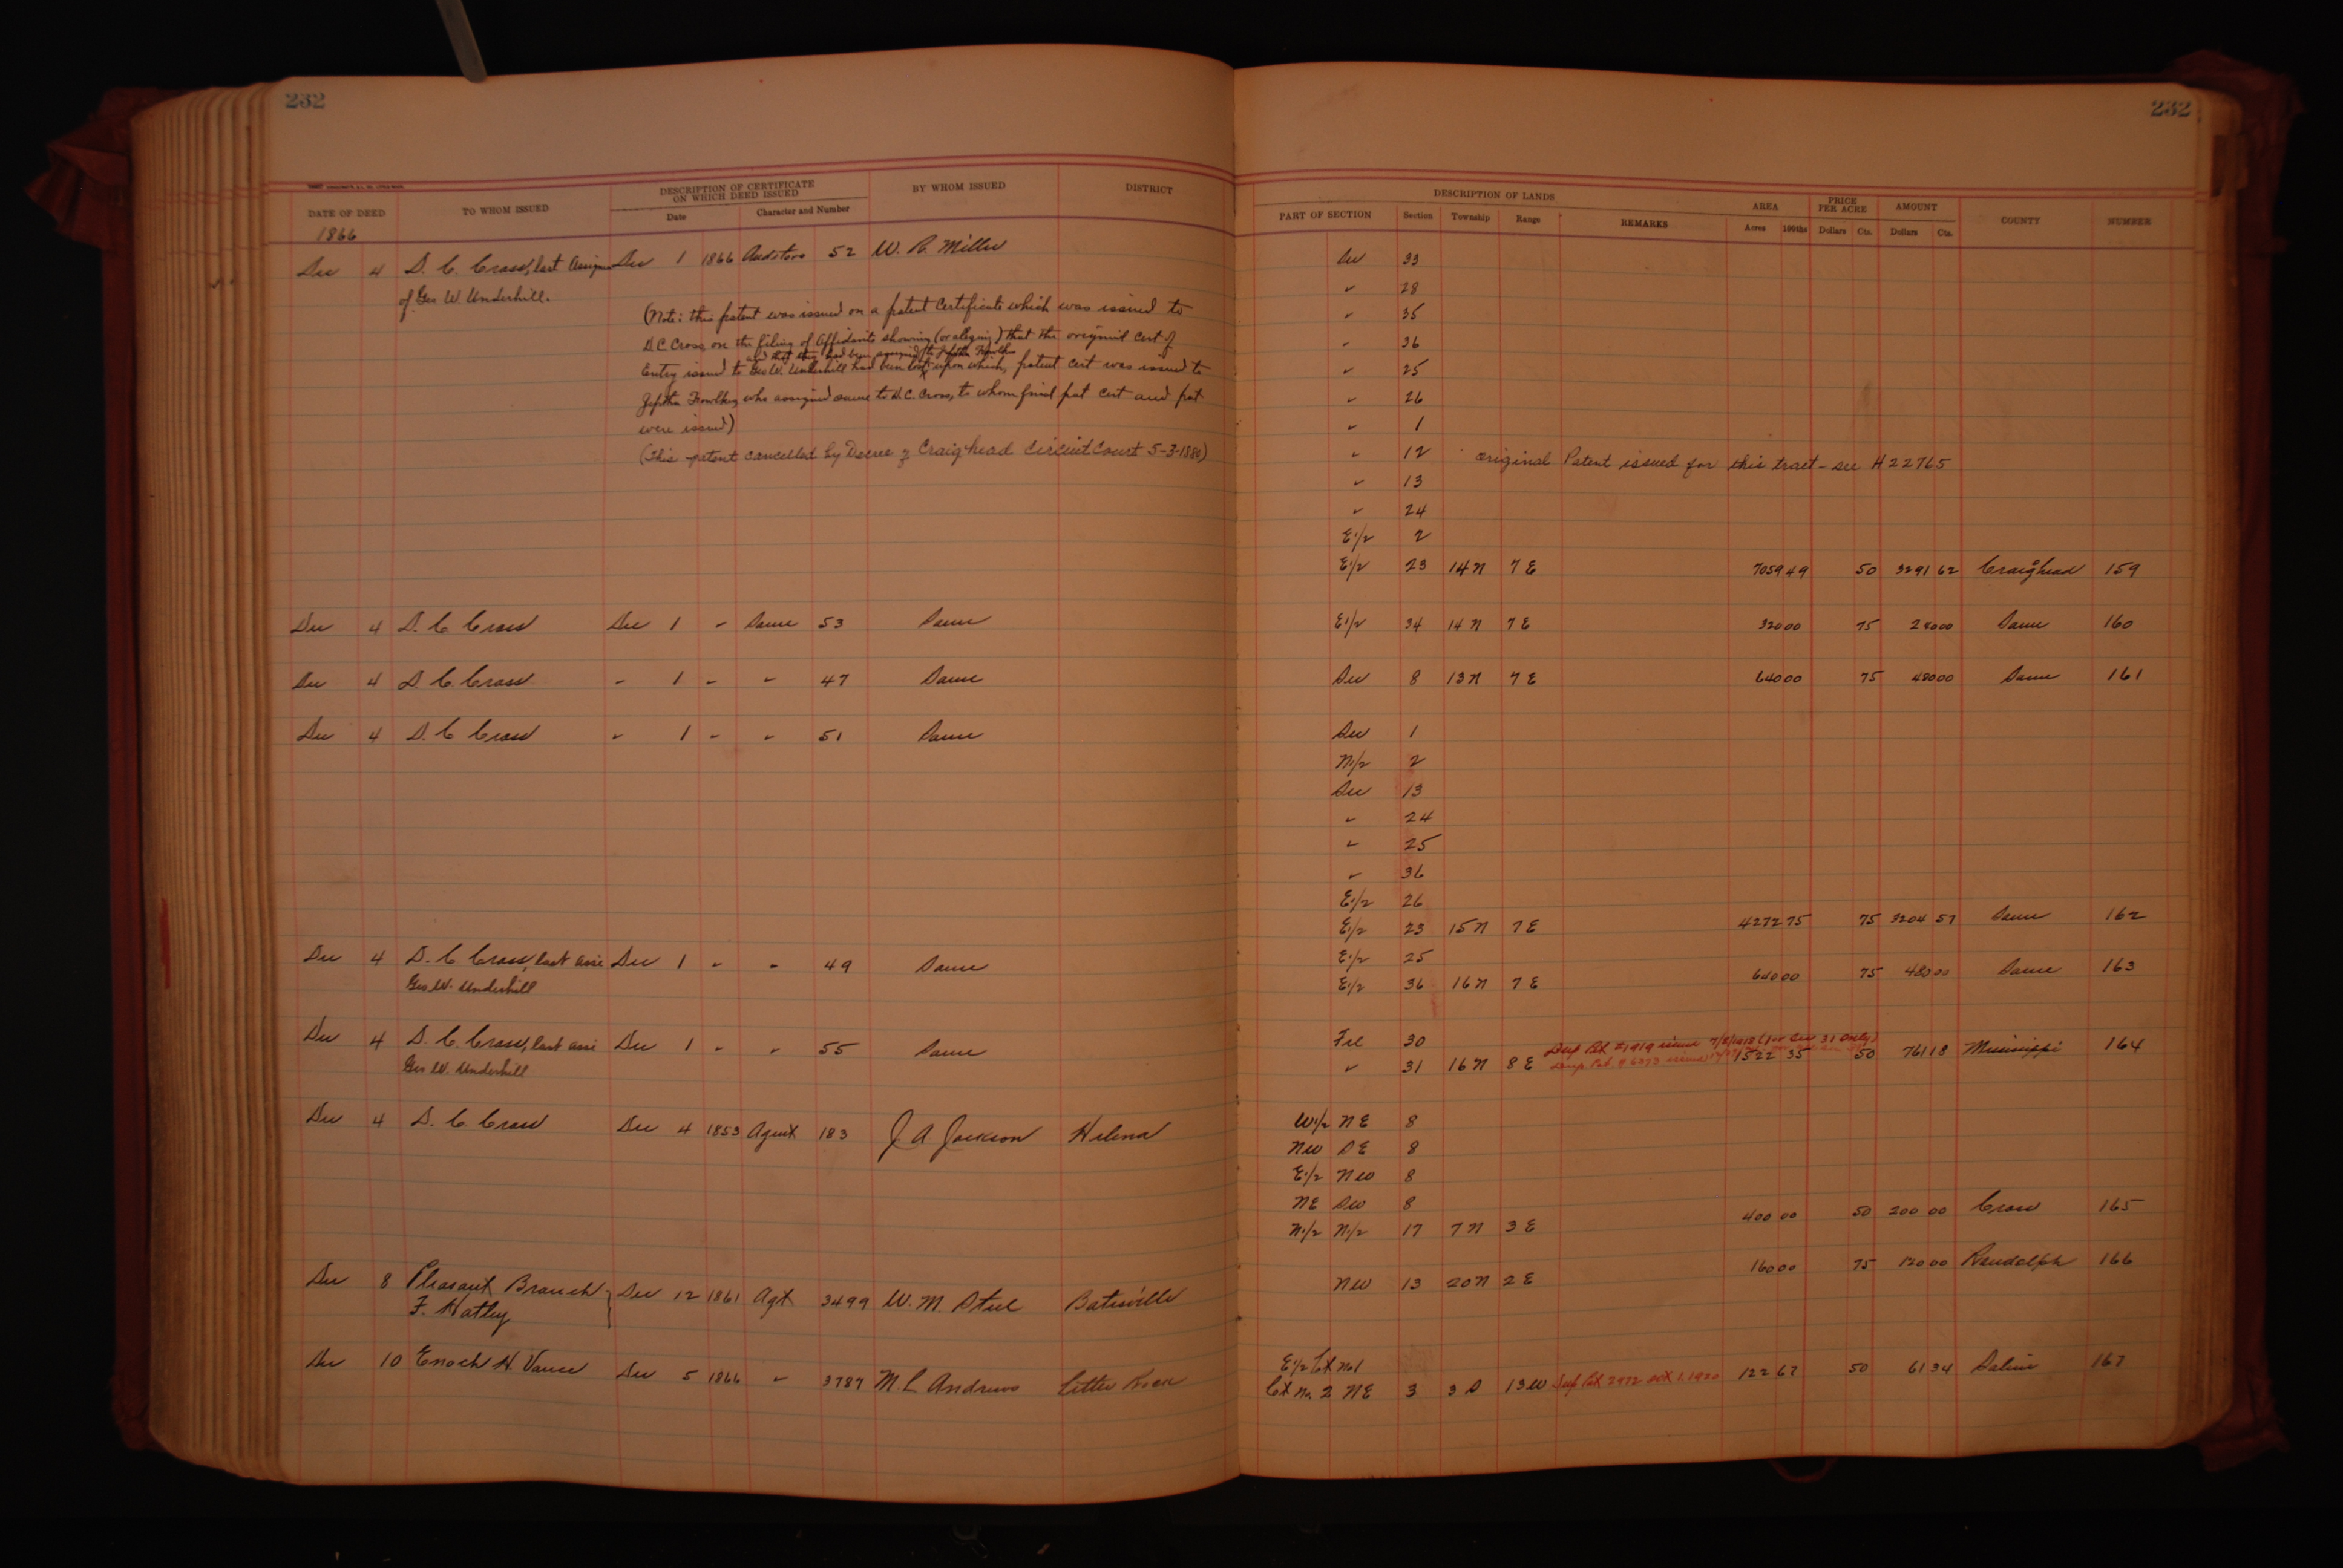 232
DATE OF DEED
TO WHOM ISSUED
DESCRIPTION OF CERTIFICATE
ON WHICH DEED ISSUED
Date
Character and Number
BY WHOM ISSUED
DISTRICT
1866
Dec 4 D. C. Cross, last Assignee Dec 1 1866 Auditors 52 W. R. Miller
of Geo W. Underhill.
(Note: this patent was issued on a patent Certificate which was issued to
D.C. Cross, on the filing of Affidavits showing (or alleging) that the original Cert of
and that they had been assigned to Jeptha Fowlkes
Entry issued to Geo W. Underhill had been lost, upon which, patent cert was issued to
Jeptha Fowlkes who assigned same to D.C. Cross, to whom final pat cert and pat
were issued)
(This patent cancelled by Decree of Craighead Circuit Court 5-3-1880)
Dec 4 D. C. Cross Dec 1 " Same 53 Same
Dec 4 D. C. Cross " 1 " " 47 Same
Dec 4 D. C. Cross " 1 " " 51 Same
Dec 4 D. C. Cross, last assi Dec 1 " " 49 Same
Geo W. Underhill
Dec 4 D. C. Cross, last assi Dec 1 " " 55 Same
Geo W. Underhill
Dec 4 D. C. Cross Dec 4 1853 Agent 183 J A Jackson Helena
Dec 8 Pleasant Branch Dec 12 1861 Agt 3499 W. M. Steel Batesville
F. Hatley
Dec 10 Enoch H. Vance Dec 5 1866 " 3787 M. L. Andrews Little Rock
232
DESCRIPTION OF LANDS
PART OF SECTION
Section
Township
Range
REMARKS
AREA
Acres
100ths
PRICE
PER ACRE
Dollars
Cts.
AMOUNT
Dollars
Cts.
COUNTY
NUMBER
Sec 33
" 28
" 35
" 36
" 25
" 26
" 1
" 12 original Patent issued for this tract - see H 22765
" 13
" 24
E 1/2 2
E 1/2 23 14 N 7 E 7059 49 50 3291 62 Craighead 159
E 1/2 34 14 N 7 E 320 00 75 240 00 Same 160
Sec 8 13 N 7 E 640 00 75 480 00 Same 161
Sec 1
N 1/2 2
Sec 13
" 24
" 25
" 36
E 1/2 26
E 1/2 23 15 N 7 E 4272 75 75 3204 57 Same 162
E 1/2 25
E 1/2 36 16 N 7 E 640 00 75 480 00 Same 163
Frl 30 Dup Pat #1919 issued 7/8/1918 (for Sec 31 Only)
" 31 16 N 8 E Dup Pat. # 6373 issued 1522 35 50 761 18 Mississippi 164
W 1/2 NE 8
NW SE 8
E 1/2 NW 8
NE SW 8
N 1/2 N 1/2 17 7 N 3 E 400 00 50 200 00 Cross 165
NW 13 20 N 2 E 160 00 75 120 00 Randolph 166
E 1/2 Lot No 1
Lot No. 2 NE 3 3 S 13 W Dup Pat 2972 Oct 1, 1920 122 67 50 61 34 Saline 167